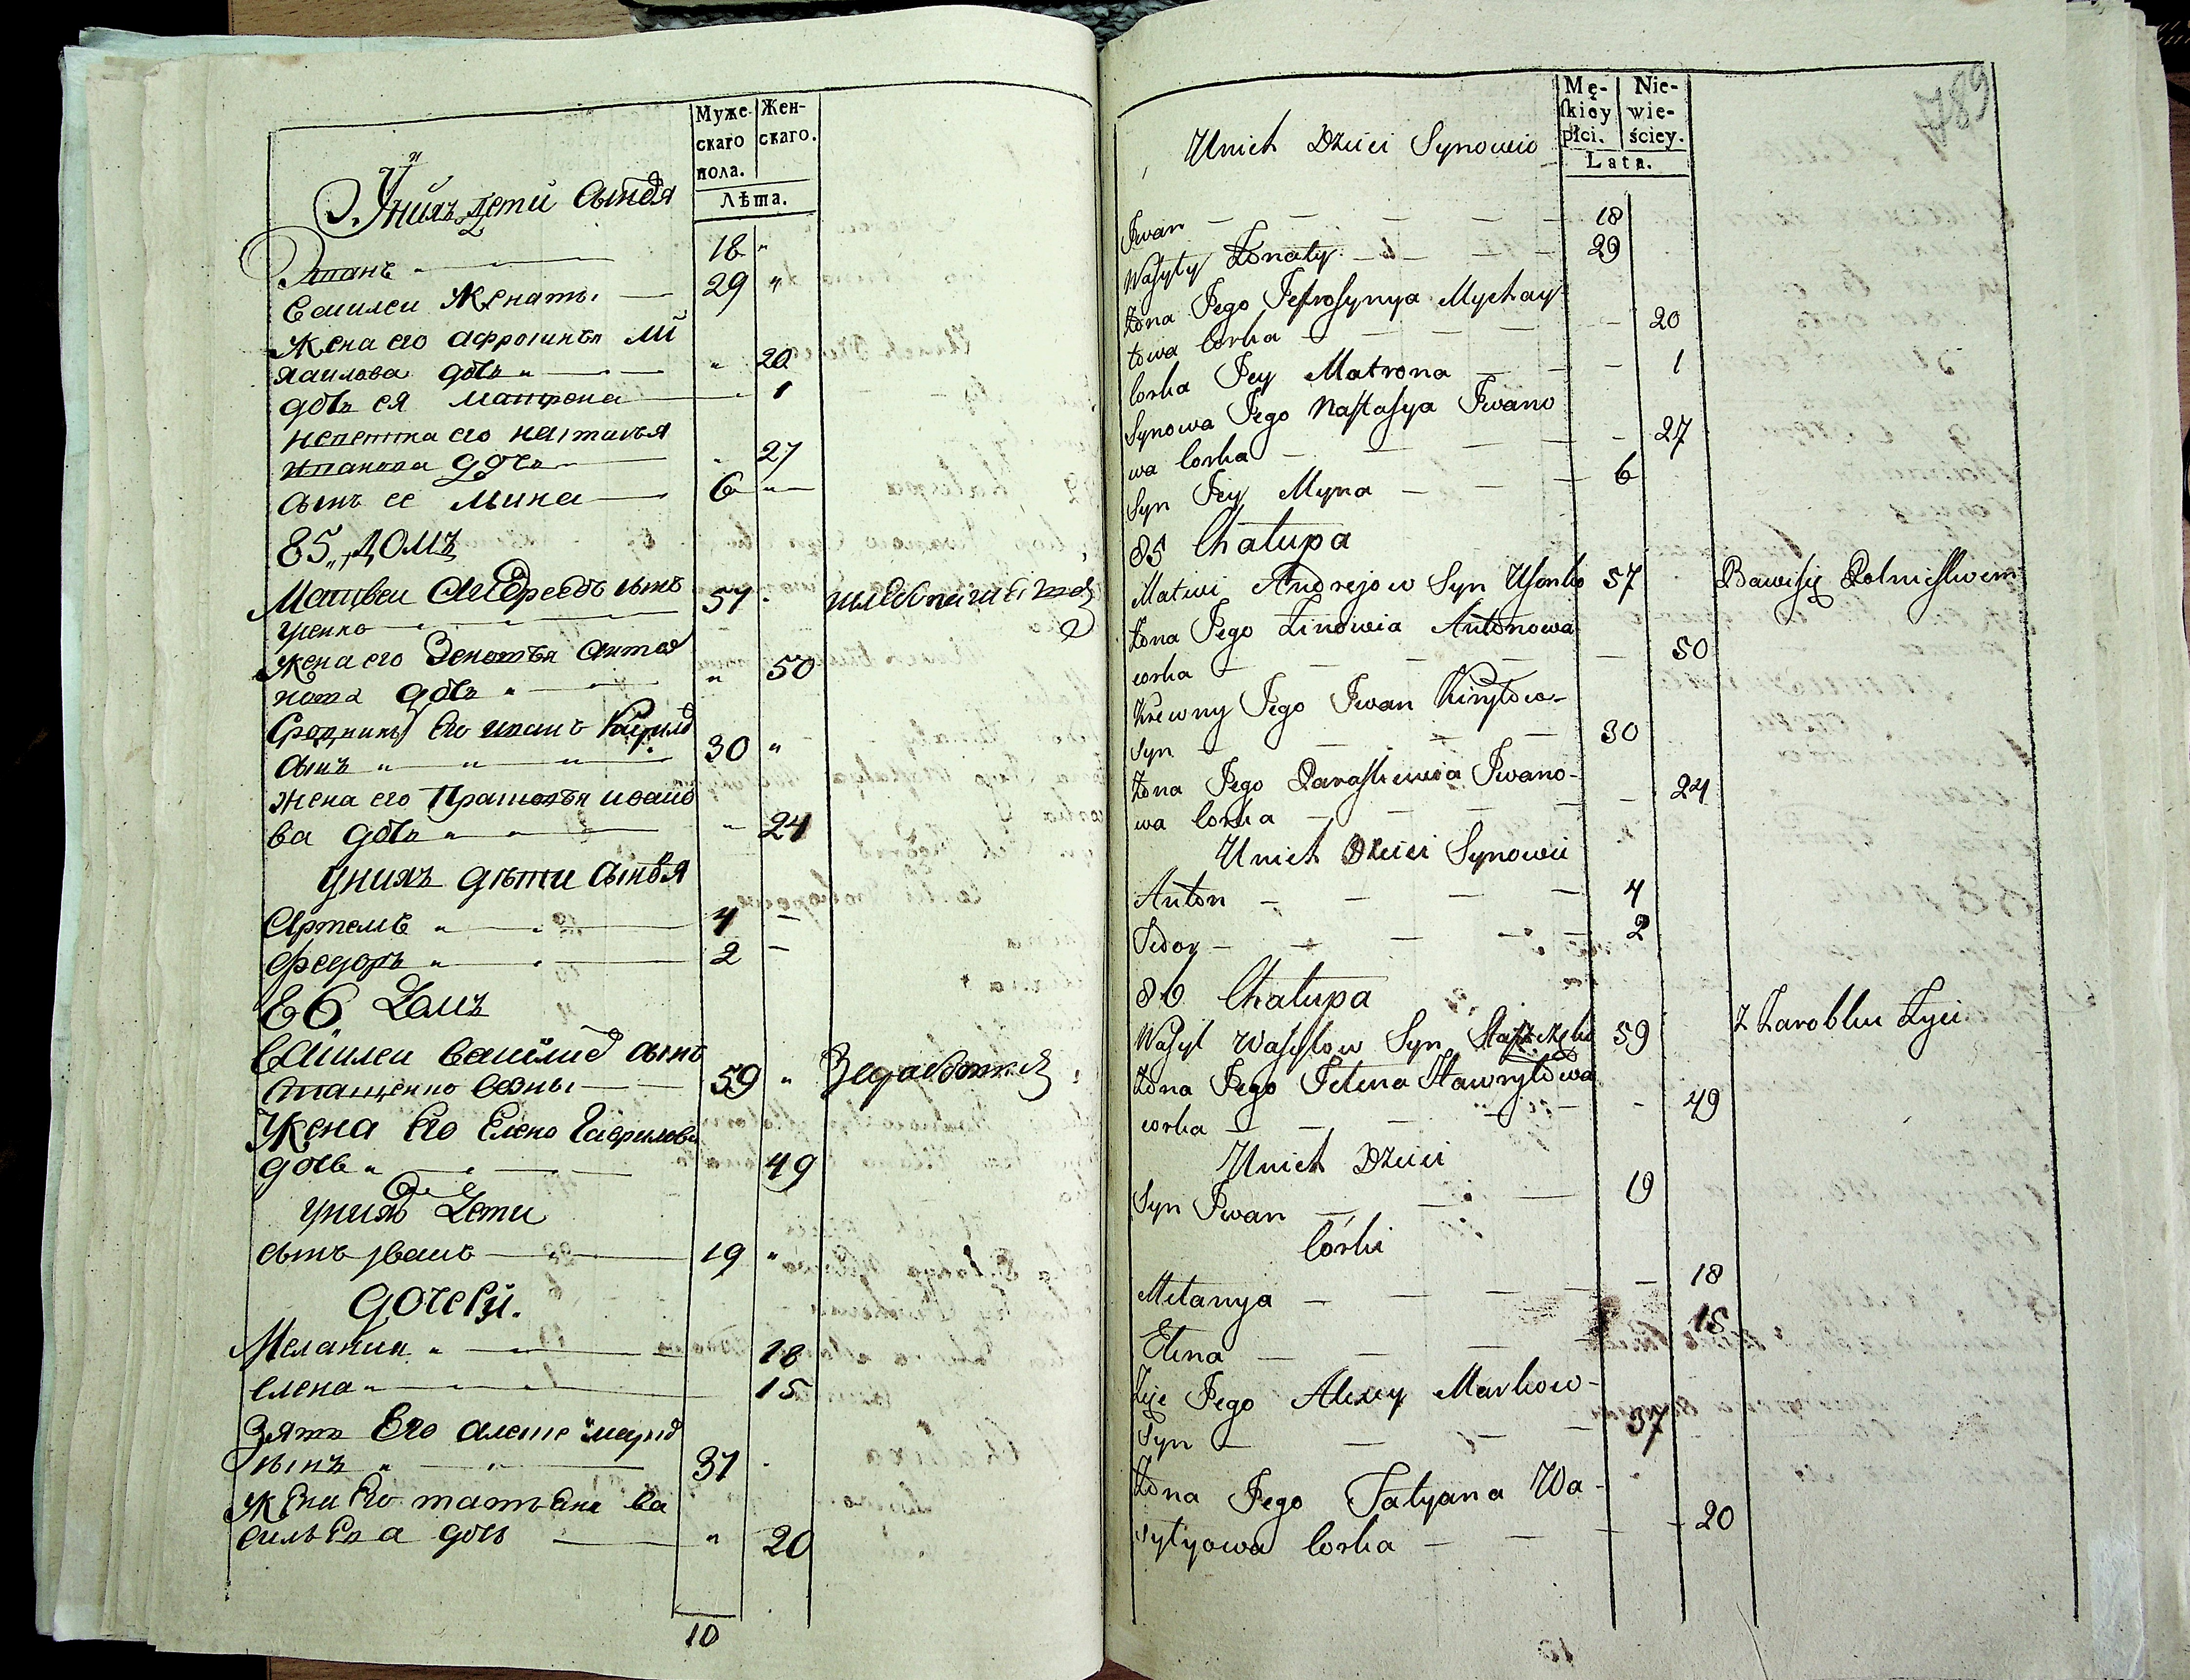 Муже-
скаго
пола.
Жен-
скаго.
Лѣта.
Унихъ дети сыновя
18 "
Василеи женатъ 29 "
Жена его Афросинья Ми
хаилова дочь " 20
дочь ея Матрена 1
невестка его Настасья
Иванова дочь 27
сынъ ее Мина 6
85 „ домъ
Матвеи Андреевъ сынъ
Усенко 57
жена его Зеновья Анто
нова дочь " 50
Сродникъ Его Иванъ Кирило
сынъ " " " 30 "
жена его Прасковья ивано
ва дочь " 24
унихъ дѣти сыновя
Артемъ " 4
Федоръ " 2
86 домъ
Василеи Василио сынъ
Сташенко 59 "
Жена Его Елено Гаврилова
дочь " 49
унихъ Дети
сынъ Иванъ 19 "
дочери.
Мелания " 18
елена " 15
Зять Его алексе марко
сынъ " 37
Жена Его татьяна ва
сильева дочь " 20
10
789
Mę-
skiey
płci.
Nie-
wie-
ściey.
Lata.
Unich Dzieci Synowie
Iwan 18
Wasyly Żonaty 29
Żona Jego Jefrosynya Mychay-
łowa Corka 20
Corka Jey Matrona 1
Synowa Jego Nastasya Iwano
wa Corka 27
Syn Jey Myna 6
85 Chałupa
Matwi Andrejow Syn Usenko 57 Bawisię Rolnictwem
Żona Jego Zinowia Antonowa
corka 50
Krewny Jego Iwan Kiryłow-
Syn 30
Żona Jego Paraskiewia Iwano-
wa Corka 24
Unich Dzieci Synowie
Anton 4
Fedor 2
86 Chałupa
Wasyl Wasylow Syn 59 Z Zarobku Żyie
Żona Jego Jelena Hawryłowa
corka 49
Unich Dzieci
Syn Iwan 19
Corki
Melanya 18
Elena 15
Zięć Jego Alexey Markow-
Syn 37
Żona Jego Tatyana Wa-
sylyowa Corka 20